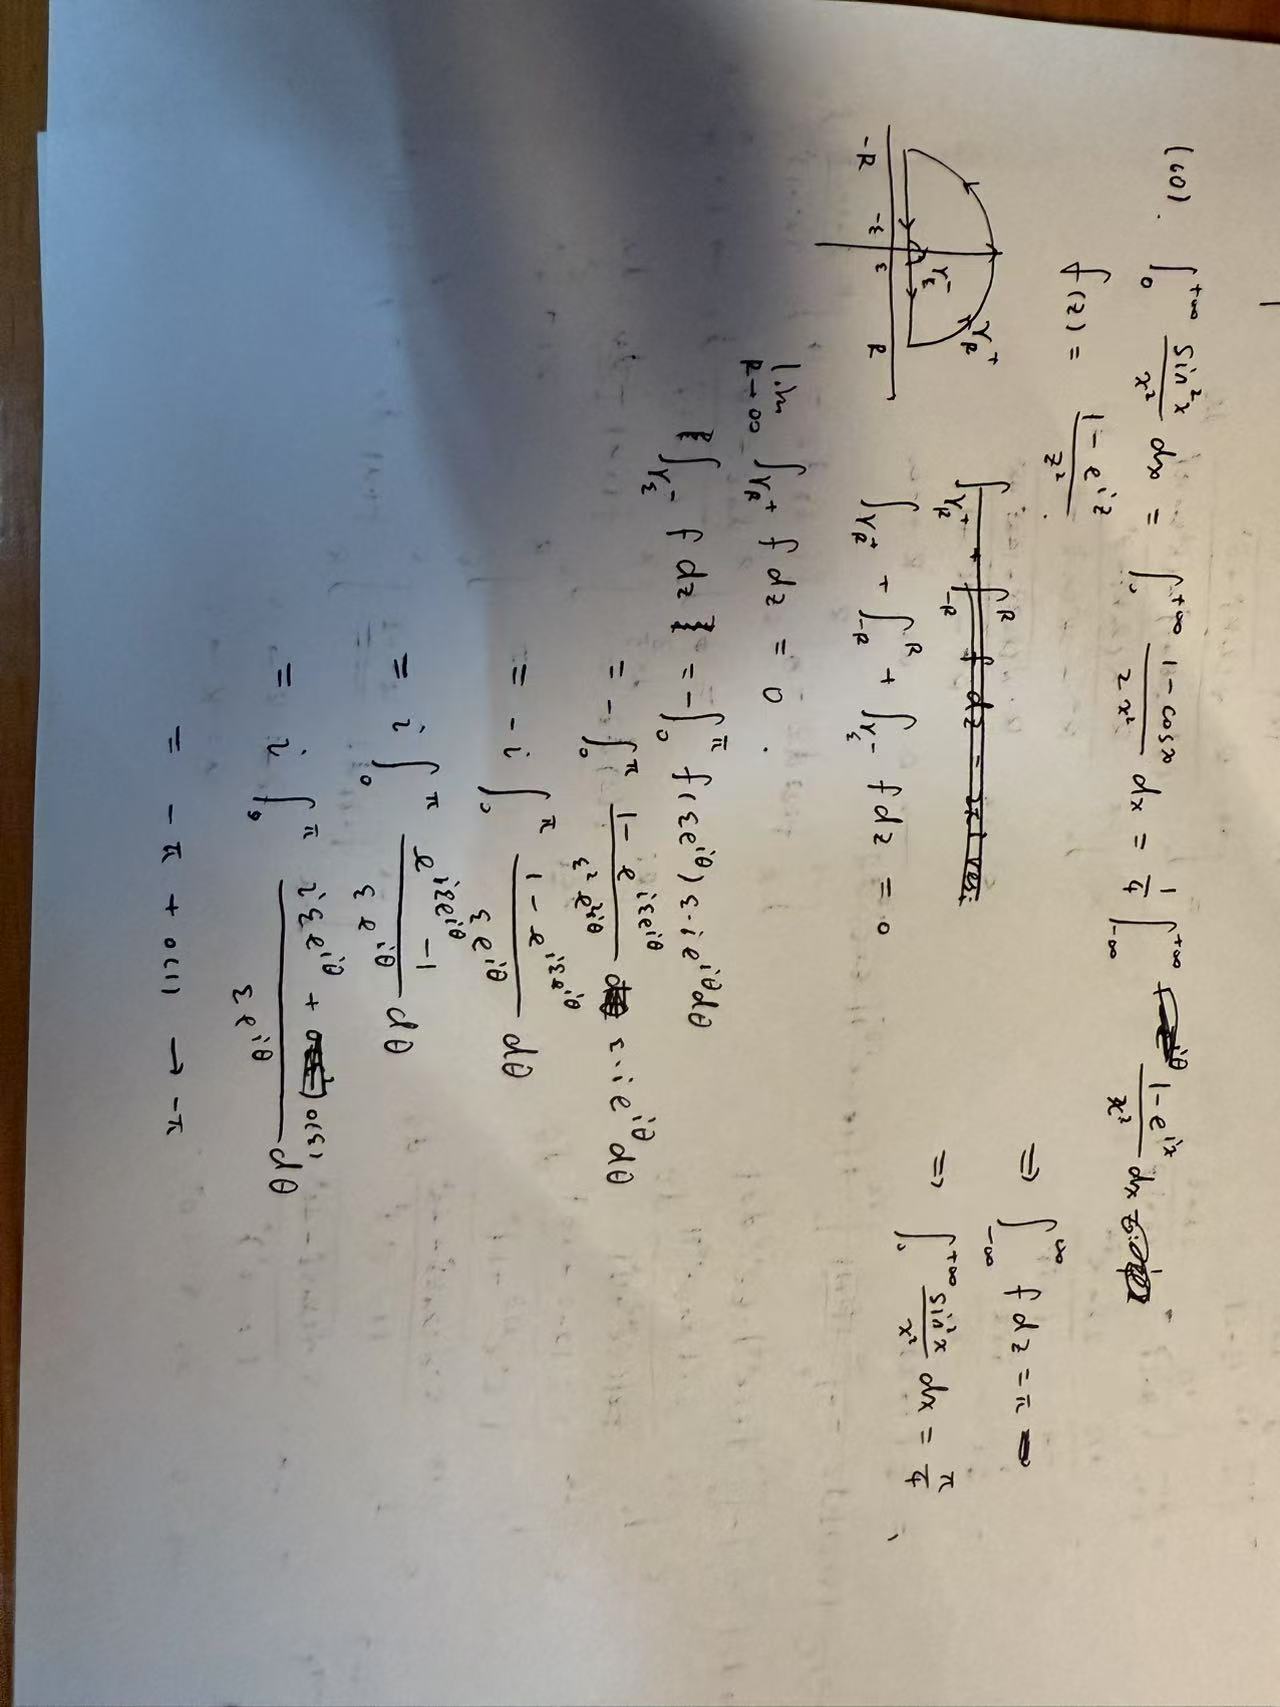 (60). ∫_0^{+∞} sin²x/x² dx = ∫_0^{+∞} (1-cosx)/(2x²) dx = 1/4 ∫_{-∞}^{+∞} (1-e^{ix})/x² dx
f(z) = (1-e^{iz})/z²
-R -ε ε R γ_ε^- γ_R^+
∫_{γ_R^+} + ∫_{-R}^{R} f dz =
∫_{γ_R^+} + ∫_{-R}^{R} + ∫_{γ_ε^-} f dz = 0
lim_{R→∞} ∫_{γ_R^+} f dz = 0.
∫_{γ_ε^-} f dz = -∫_0^π f(εe^{iθ}) ε·i·e^{iθ} dθ
= -∫_0^π (1-e^{iεe^{iθ}})/(ε²e^{2iθ}) ε·i·e^{iθ} dθ
= -i ∫_0^π (1-e^{iεe^{iθ}})/(εe^{iθ}) dθ
= i ∫_0^π (e^{iεe^{iθ}}-1)/(εe^{iθ}) dθ
= i ∫_0^π (iεe^{iθ} + o(ε))/(εe^{iθ}) dθ
= -π + o(1) → -π
⇒ ∫_{-∞}^{∞} f dz = π
⇒ ∫_0^{+∞} sin²x/x² dx = π/4